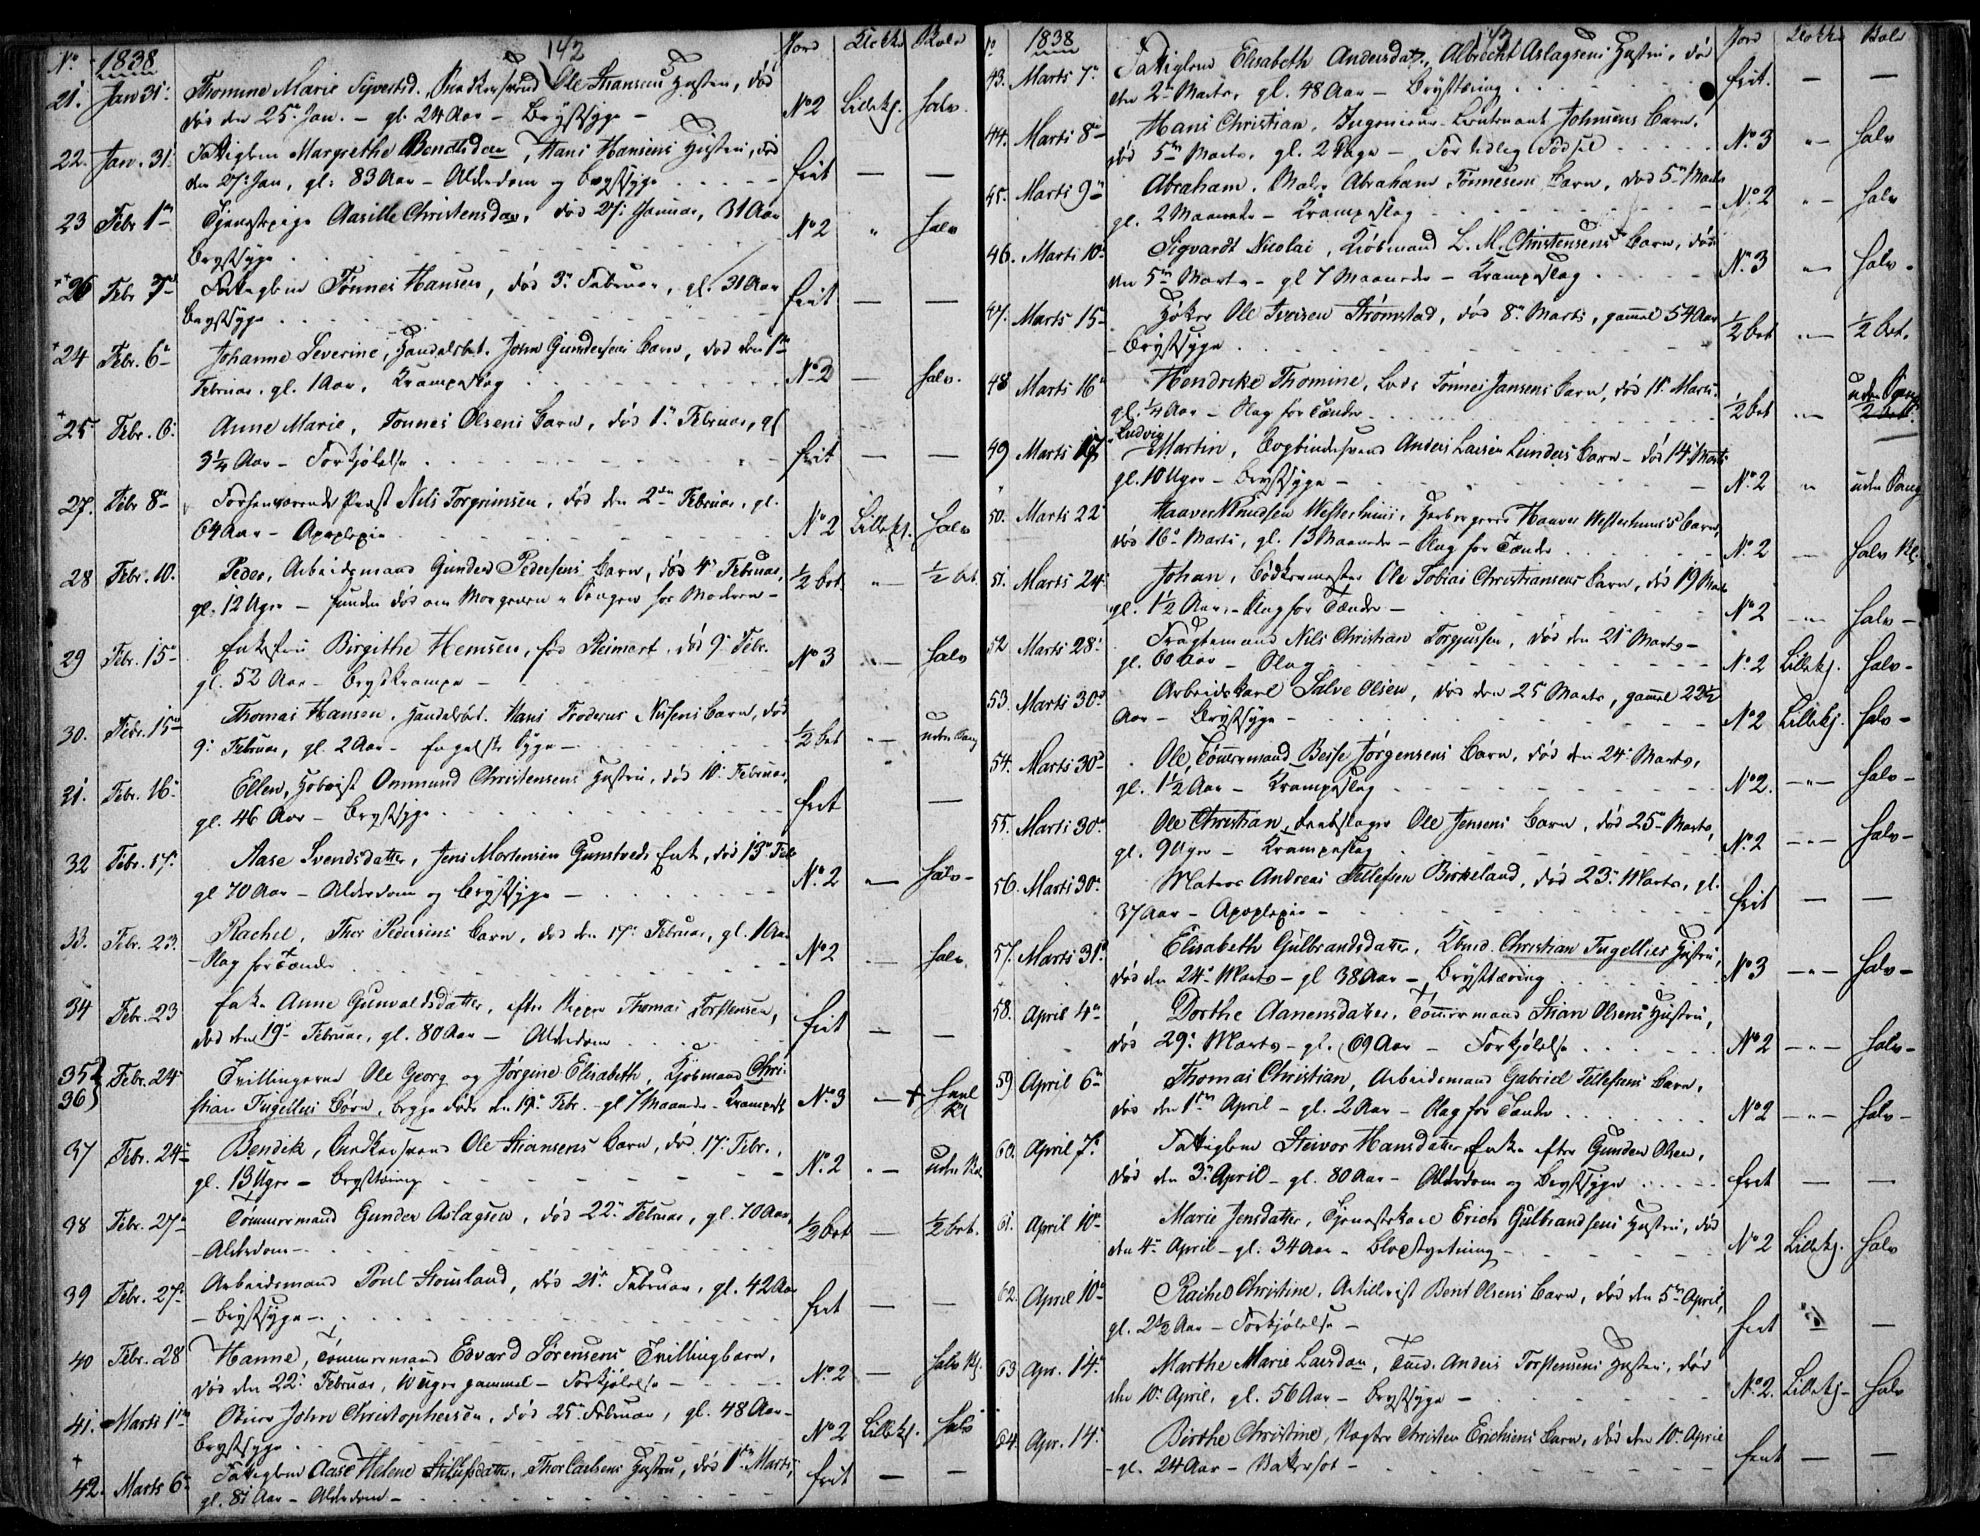 142
No 1838 Jord Klokke
21. Jan 31. Thomine Marie Syvertsd. Ole Hansens Hustru, død
død den 25. Jan. – gl. 24 Aar – Brystsyge – No 2 Lillekl. halv.
22. Jan. 31. Fattiglem Margrethe Bendtsdan, Hans Hansens Hustru, død
den 27. Jan, gl. 83 Aar – Alderdom og Brystsyge frit — —
23 Febr 1 Tjenestepige Aasille Christensdan, død 27. Januar, 31 Aar No 2 " halv
Brystsyge
26 Febr 7 Fattiglem Tønnes Hansen, død 3. Februar, gl. 31 Aar frit — —
Brystsyge
24 Febr. 6 Johanne Severine, Handelsbet. John Gundersens Barn, død den 1
Februar, gl. 1 Aar, Krampeslag No 2 — halv.
25 Febr. 6. Anne Marie, Tønnes Olsens Barn, død 1. Februar, gl
3¼ Aar – Forkjølelse frit — —
27. Febr 8 Forhenværende Nels Torgrimsen, død den 2den Februar, gl.
64 Aar – Apoplexie No 2 Lillekl. halv
28 Febr. 10. Peder, Arbeidsmand Gunder Pedersens Barn, død 4 Februar, ½ bet. " ½ bet.
gl. 12 Uger – funden død om Morgenen i Sengen hos Moderen –
29 Febr. 15 Enkefru Birgithe Hemsen, fød Reimert, død 9. Febr. No 3 " halv
gl. 52 Aar – Brystkrampe –
30. Febr. 15 Thomas Hansen, Handelsbet. Hans Froderus Nisens Barn, død
9. Februar, gl. 2 Aar – Engelsk Syge – ½ bet " uden Sang
31. Febr. 16 Ellen, Ommund Christensens Hustru, død 10. Februar
gl. 46 Aar – Brystsyge frit —
32 Febr. 17. Aase Svendsdatter, Jens Mortensen Gunstveds Enke, død 13 Febr
gl 70 Aar – Alderdom og Brystsyge – No. 2 — halv –
33. Febr. 23. Rachel, Thor Pedersens Barn, død den 17. Februar, gl. 1 Aar
– Slag for Tænder No 2 — halv.
34 Febr. 23 Enke Anne Gunvaldsdatter, efter Thomas Torstensen,
død den 19. Februar, gl. 80 Aar – Alderdom frit — —
35 Febr. 24 Tvillingerne Ole Georg og Jørgine Elisabeth, Kjøbmand Chri-
36 stian Fugellies Børn, begge døde den 19. Febr. – gl 7 Maaneder – Krampesl No. 3 — + halv Kl
37 Febr. 24 Bendik, Ole Stiansens Barn, død 17. Febr.,
gl. 13 Uger – Brysttæring No. 2 " uden Kl.
38 Febr. 27 Tømmermand Gunder Aslagsen, død 22. Februar, gl. 70 Aar, ½ bet — ½ bet.
– Alderdom –
39 Febr. 27 Arbeidsmand Poul Stousland, død 21. Februar, gl. 42 Aar
– Brystsyge – frit — —
40 Febr. 28 Hanne, Tømmermand Edvard Sørensens Tvillingbarn,
død den 22. Februar, 10 Uger gammel – Forkjølelse – No. 2 — halv Kl.
41. Marti 1 John Christophersen, død 25. Februar, gl. 48 Aar – No 2 Lillekl. halv
Brystsyge
42. Marts 6 Fattiglem Aase Helene Stilufsdatter, Thor Carlsens Hustru, død 1 Marts, frit — —
gl. 81 Aar – Alderdom –
1838 Jord Klokke
43. Marts 7. Fattiglem Elisabeth Andersdatter, Albrecht Aslagsens Hustru, død frit. — —
den 2 Marts, gl. 48 Aar – Brysttæring
44. Marti 8 Hans Christian, Ingenieur-Lieutenant Johnsens Barn, No 3 " halv
død 5 Marts, gl. 2 Dage – For tidlig Fødsel
45. Marti 9 Abraham, Abraham Tønnesens Barn, død 5 Marts No 2 " halv
gl. 2 Maaneder – Krampeslag
46. Marti 10 Sigvardt Nicolai, Kjøbmand L. M. Christensens Barn, død No. 3 " halv.
den 5 Marts – gl 7 Maaneder – Krampeslag
47. Marts 15 Høker Ole Iversen Strømstad, død 8. Marts, gammel 54 Aar ½ bet " ½ bet.
– Brystsyge
48 Marts 16 Hendrike Thomine, Lods Tønnes Jansens Barn, død 11. Marts. ½ bet " uden Sang
gl. ¼ Aar – Slag for Tænder
49 Marts 17 Ludvig Martin, Bogbindersvend Anders Larsen Lunders Barn – død 14. Marts
gl. 10 Uger – Brystsyge – No. 2 " uden Sang
50. Marti 22 Haaver Knudsen Westerhuus, Haaver Westerhuus's Barn,
død 16. Marts, gl. 13 Maaneder – Slag for Tænder No. 2 — halv Kl.
51. Marts 24 Johan, Bødkermester Ole Tobias Christiansens Barn, død 19 Marts
gl. 1½ Aar – Slag for Tænder – No 2 " halv –
52 Marts 28. Fragtemand Nils Christian Torgiussen, død den 21. Marts –
gl. 60 Aar – Slag No. 2 Lillekj. halv –
53. Marti 30 Arbeidskarl Salve Olsen, død den 25 Marts, gammel 22½
Aar – Brystsyge – No 2 Lillekj. halv –
54. Marti 30 Ole, Tømmermand Beise Jørgensens Barn, død den 24. Marts,
gl. 1½ Aar – Krampeslag No 2. " halv –
55. Marti 30 Ole Christian, Ole Jensens Barn, død 25 Marts,
gl. 9 Uger – Krampeslag No. 2 " halv –
56. Marti 30 Matros Andreas Tellefsen Birkeland, død 23. Marts, gl. frit — —
37 Aar – Apoplexie –
57. Marts 31. Elisabeth Gulbrandsdatter, Kbmd. Christian Fugellies Hustru,
død den 24. Marts – gl 38 Aar – Brysttæring No 3 " halv –
58. April 4 Dorthe Aanensdatter, Tømmermand Stian Olsens Hustru,
død 29. Marts – gl. 69 Aar – Forkjølelse No 2 " halv –
59 April 6 Thomas Christian, Arbeidsmand Gabriel Tellefsens Barn,
død den 1 April – gl. 2 Aar – Slag for Tænder No 2 " halv –
60. April 7. Fattiglem Steivor Hansdatter, Enke efter Gunder Olsen,
død den 3. April – gl. 80 Aar – Alderdom og Brystsyge frit — —
61. April 10 Marie Jensdatter, Tjenestekarl Erich Gulbrandsens Hustru, død
den 4. April – gl. 34 Aar – Blodstyrtning – No 2 Lillekj. halv
62. April 10 Rachel Christine, Artillerist Bent Olsens Barn, død den 5 April,
gl. 2½ Aar – Forkjølelse – frit — —
63 Apr. 14. Marthe Marie Larsdan, Tmd. Anders Torstensens Hustru, død
den 10. April, gl. 56 Aar – Brystsyge – No. 2. Lillekj – halv
64. Apr. 14. Birthe Christine, Vægter Christen Erichsens Barn, død den 10. April
– gl. 24 Aar – Vatersot – frit — —